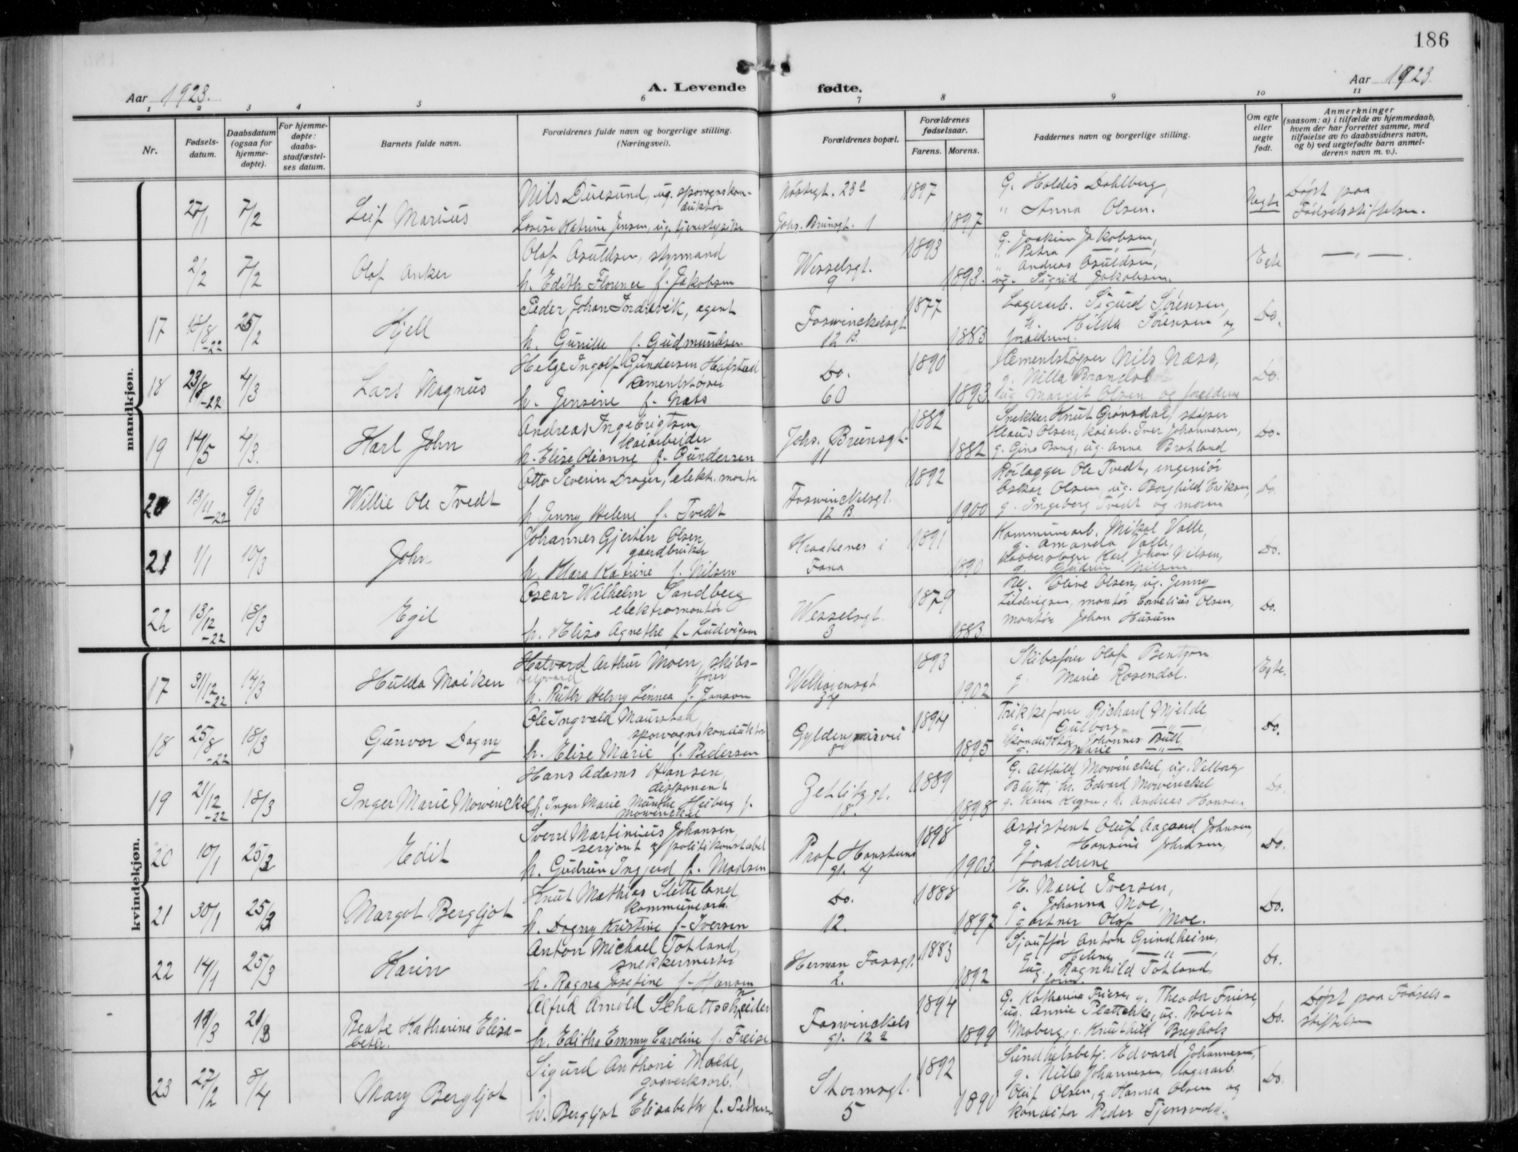 186
Aar 1923.
A. Levende fødte.
Aar 1923
1 2 3 4 5 6 7 8 9 10 11
Nr.
Fødsels-
datum.
Daabsdatum
(ogsaa for
hjemme-
døpte).
For hjemme-
døpte:
daabs-
stadfæstel-
ses datum.
Barnets fulde navn.
Forældrenes fulde navn og borgerlige stilling.
(Næringsvei).
Forældrenes bopæl.
Forældrenes
fødselsaar.
Farens. Morens.
Faddernes navn og borgerlige stilling.
Om egte
eller
uegte
født.
Anmerkninger
(saasom: a) i tilfælde av hjemmedaab,
hvem der har forrettet samme, med
tilføielse av to daabsvidners navn,
og b) ved uegtefødte barn anmel-
derens navn m. v.).
mandkjøn.
27/1 7/2 Leif Marius
Louise Katrine Jensen, ug. tjenestepike
Johs. Brunsgt. 1
1897
1897
G. Holdis Dahlberg,
" Anna Olsen.
Uegte
Døpt paa
Fødselsstiftelsen.
2/2 7/2 Olaf Anker
Olaf Asuldsen, styrmand
h. Edith Florence f. Jakobsen
Wesselsgt.
9
1893
1893.
G. Joakim Jakobsen,
" Petra
" Andreas Asuldsen,
ug. Sigrid Jakobsen.
Egte
— " —
17 15/8-22 25/2 Kjell
Peder Johan Indrebik, agent
h. Gunille f. Gudmundsen
Foswinckelsgt
12 B.
1877
1883
Lagerarb. Sigurd Sørensen,
h. Hilda Sørensen og
forældrene.
Do.
18 23/8-22 4/3 Lars Magnus
Helge Ingolf Gundersen Hafstad
cementstøper
h. Jensine f. Næss
Do.
60
1890
1893
Cementstøper Nils Næss,
ug. Margit Olsen og forældrene
Do.
19 14/5 4/3. Karl John
Andreas Ingebrigtsen,
kaiarbeider
h. Elise Oleanne f. Gundersen
Johs. Brunsgt.
11
1882
1882
Snekker Knut Grønsdal, støper
Klaus Olsen, kaiarb. Iver Johannesen,
g. Gina Bang, ug. Anna Brotland
Do.
20 13/11-22 9/3 Willie Ole Tvedt
Otto Severin Drager, elektr. montør
h. Jenny Helene f. Tvedt
Foswinckelsgt.
12 B
1892
1900
Rørlægger Ole Tvedt, ingeniør
Oskar Olsen, ug. Borghild Eriksen,
g. Ingeborg Tvedt og moren
Do.
21 1/1 10/3 John
Johannes Gjertin Olsen,
gaardbruker
h. Klara Katrine f. Nilsen
Kraakenes i
Fana
1891
1890
Kommunearb. Mikal Valle,
g. Amanda Valle,
Karl Johan Nilsen,
g. Gudrun Nilsen.
Do.
22 13/12-22 18/3 Egil
Oscar Wilhelm Sandberg
elektromontør
h. Elise Agnethe f. Ludvigsen
Wesselsgt.
3
1879
1883
Olive Olsen, ug. Jenny
Ludvigsen, montør Cornelius Olsen,
montør Johan Husum
Do.
kvindekjøn.
17 31/12-22 14/3 Hulda Maiken
Halvard Arthur Moen, skibs-
fører
h. Ruth Helny Linnea f. Jansson
Welhavensgt
1893
1902
Skibsfører Olaf Bentzon
g. Marie Rosendal.
Egte.
18 25/8-22 18/3 Gunvor Dagny
Ole Ingvald Maurstad
sporvognskonduktør
h. Elise Marie f. Pedersen
Gyldenprisvei
1894
1895
Trikkefører Richard Mjelde,
g. Gulborg — " —
Konduktør Johannes Butt
g. Marie — " —
Do.
19 21/12-22 18/3 Inger Marie Mowinckel
Hans Adams Hansen,
disponent
h. Inger Marie Munthe Heiberg f.
Mowinckel
Zetlitzgt.
18.
1889
1898
G. Alfhild Mowinckel, ug. Valborg
Blytt, hr. Edvard Mowinckel
Do.
20 10/1 25/3 Edit
Sverre Martinius Johansen
sersjant og politikonstabel
h. Gudrun Ingjerd f. Madsen
Prof. Hansteens
gt. 4
1898
1903.
Assistent Oluf Aagaard Johnsen,
g. Hansine Johnsen,
forældrene
Do.
21 30/1 25/3 Margot Bergljot
Knut Mathias Sletteland
kommunearb.
h. Dagny Kristine f. Iversen
Do.
12.
1888
1897
E. Marie Iversen,
g. Johanna Moe,
gartner Olaf Moe.
Do.
22 14/1 25/3 Karin
Anton Michael Totland,
snekkermester
h. Ragna Josefine f. Hansen
Herman Fossgt.
2.
1883
1892
Sjauffør Anton Grindheim,
g. Helene — " —,
ug. Ragnhild Totland
Do.
19/3 21/3 Beate Katharine Elisa-
beth.
Alfred Arnold Schattschneider
h. Editha Emmy Caroline f. Freise
Foswinckels
gt. 12 a
1894
1899
G. Katharina Friese, g. Theodor Friese
ug. Annie Plattehke, ug. Robert
Moberg, g. Knuthild Bregholz
Do.
Døpt paa Fødsels-
stiftelsen
23 27/2 8/4 Mary Bergljot
Sigurd Anthoni Molde,
gasverksarb.
h. Bergljot Elisabeth f. Pettersen
Stormsgt.
5
1892
1890
Sundhetsbetj. Edvard Johannesen,
g. Nilla Johannesen, lagerarb.
Olaf Olsen, g. Hanna Olsen og
konditor Peder Tjensvold.
Do.